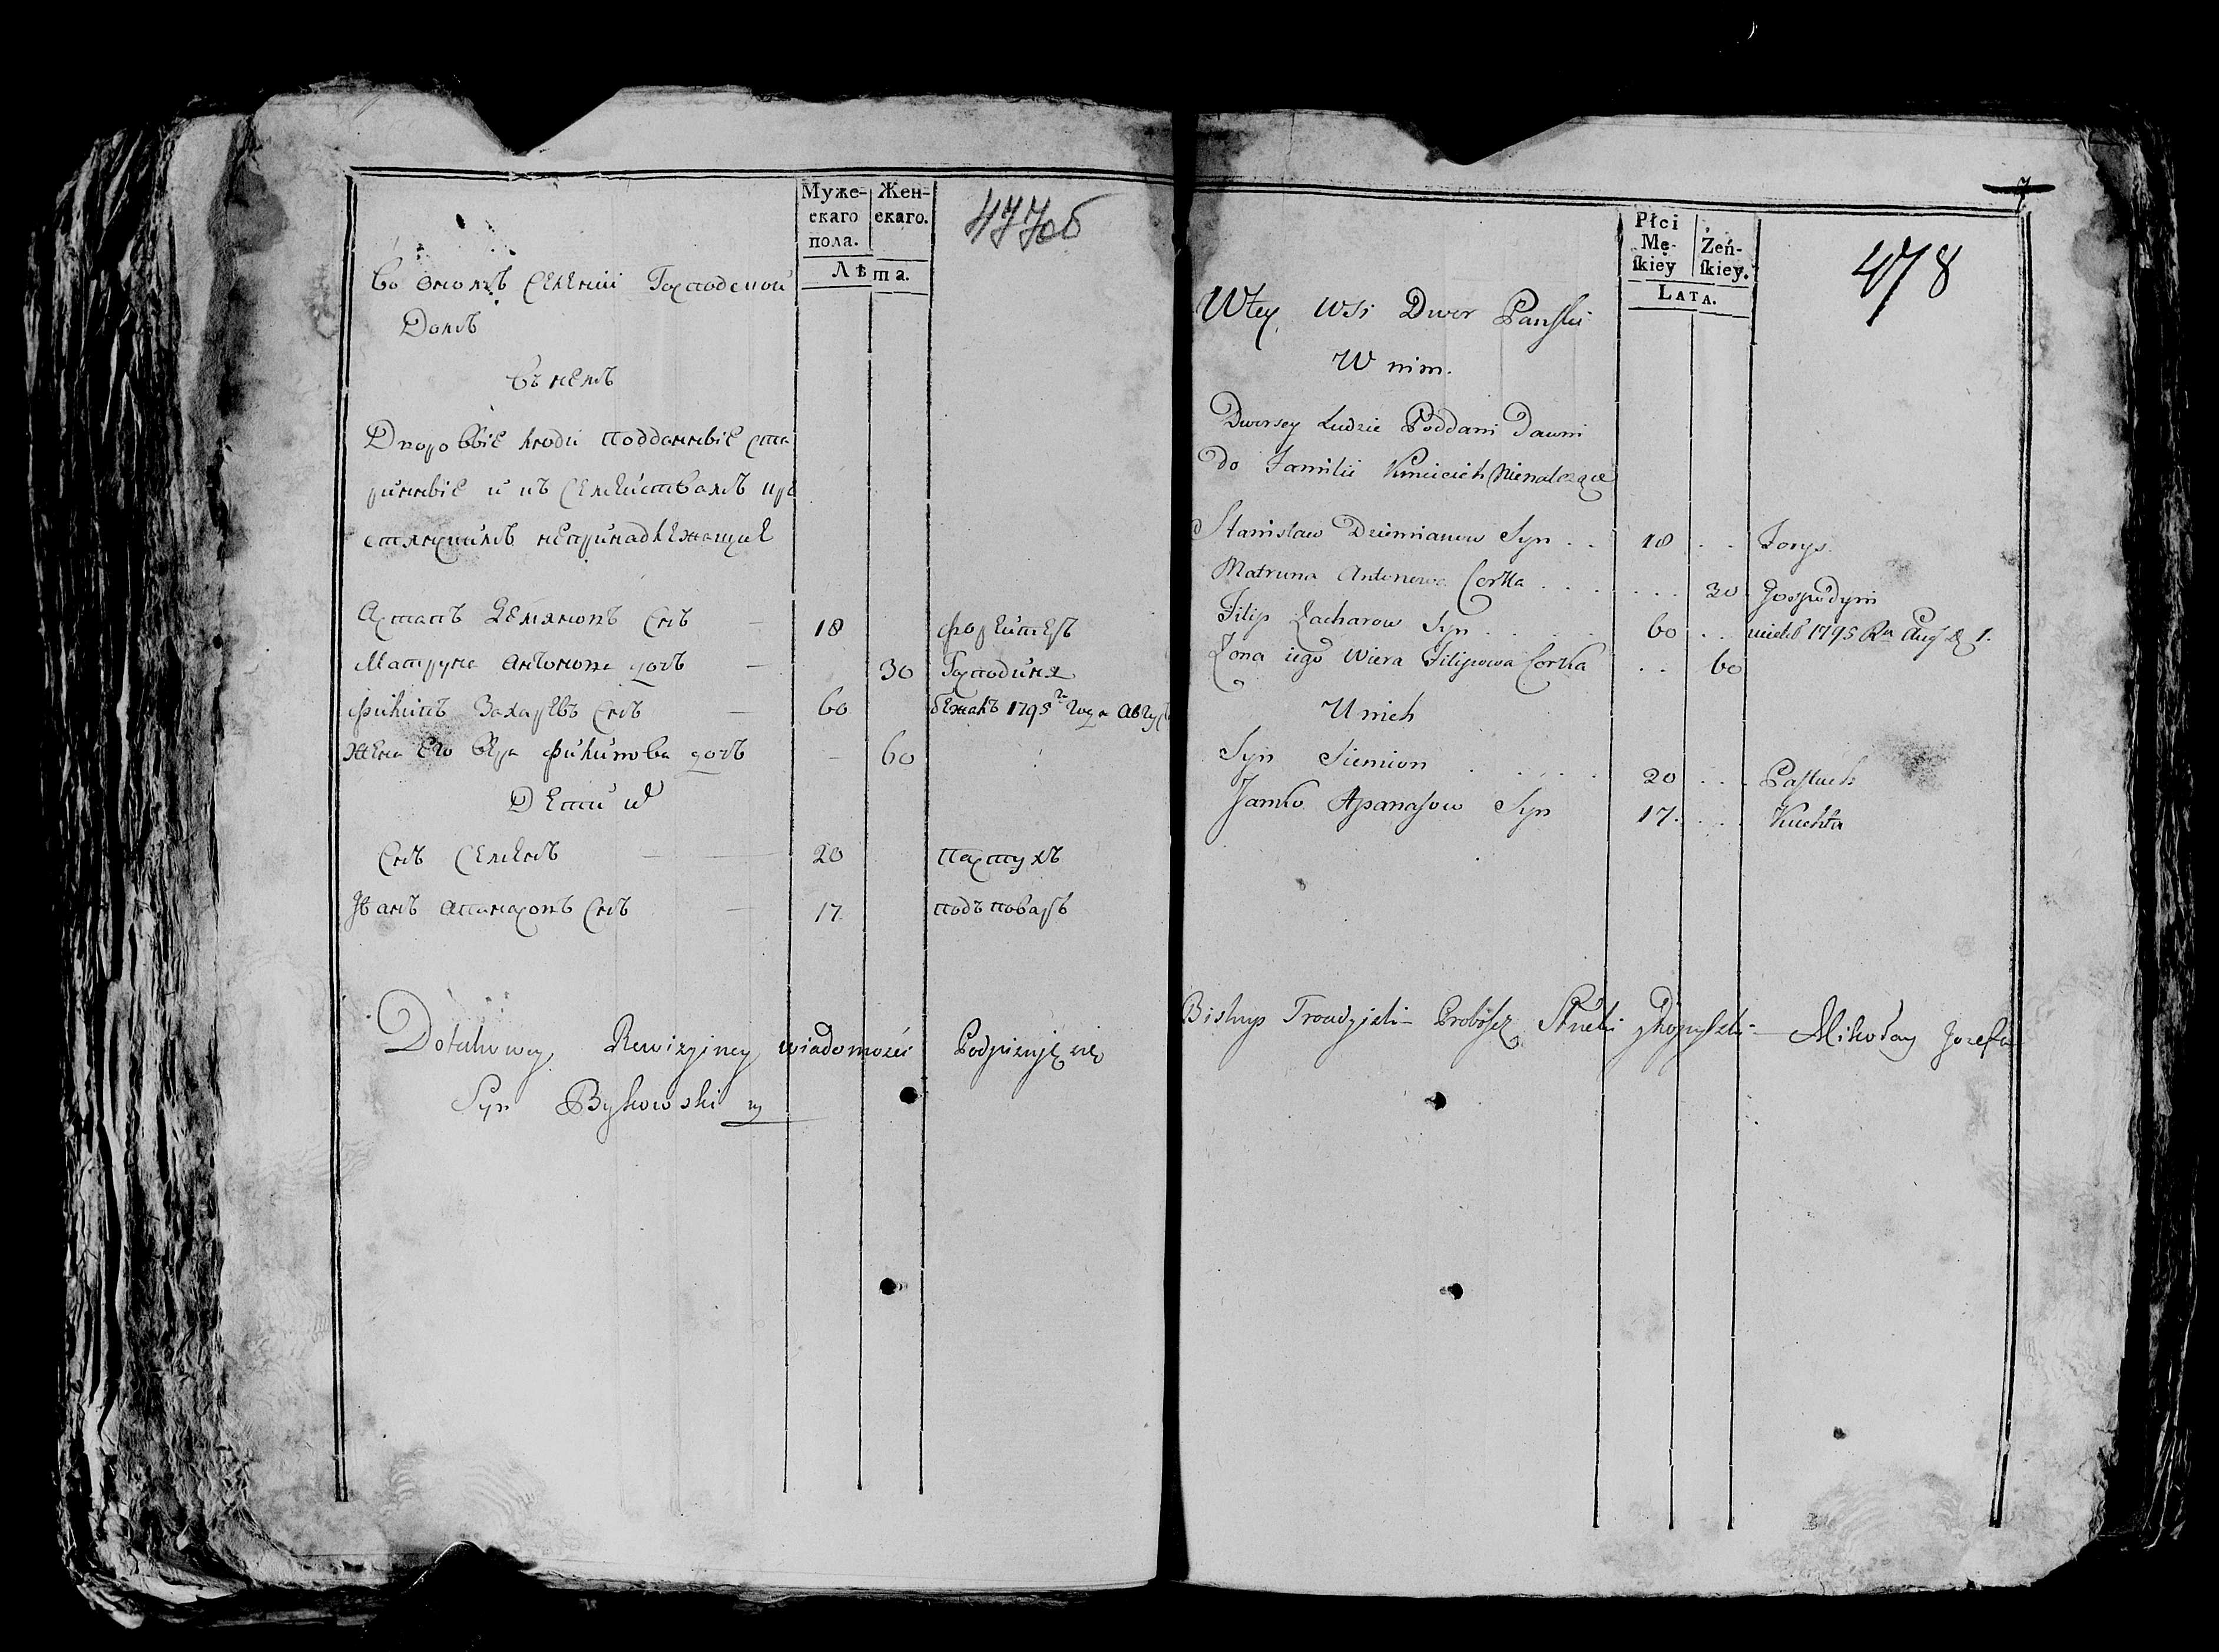 Муже-
скаго
пола.
Жен-
скаго.
Лѣта.
477об
Во ономъ селении Господской
Домъ
Въ немъ
Дворовые люди подданные ста
ринные и къ семействамъ кре
стянскимъ непринадлежащие
Астапъ Демяновъ снъ — 18 форейтеръ
Матруна Антонова дочь — 30 Господиня
Филипъ Захаревъ снъ — 60 бежалъ 1795го Года Авгус
Жена его Вера Филипова дочь — 60
Дети их
Снъ Семенъ — 20 пастухъ
Иванъ Апанасовъ снъ — 17 подъповаръ
Dotakowey Rewizyiney wiadomości Podpisuję się
Syn Bykowski
7
Płci
Mę-
skiey
Żeń-
skiey.
LATA.
478
W tey Wsi Dwor Panski
W nim.
Dworscy Ludzie Poddani Dawni
do Familii Kmiecich Nienalezące
Stanisław Dziemianow Syn . . 18 . . Forys
Matruna Antonowa Corka . . . . . . 30 Gospodyni
Filip Zacharow Syn . . . . 60 . . 1795 Ru Aug D 1.
Zona iego Wiera Filipowa Corka . . 60
U nich
Syn Siemion . . . . 20 . . . Pastuch
Janko Apanasow Syn 17. . . . Kuchta
Biskup Proboscz Słucki y Mikołay Jozefa